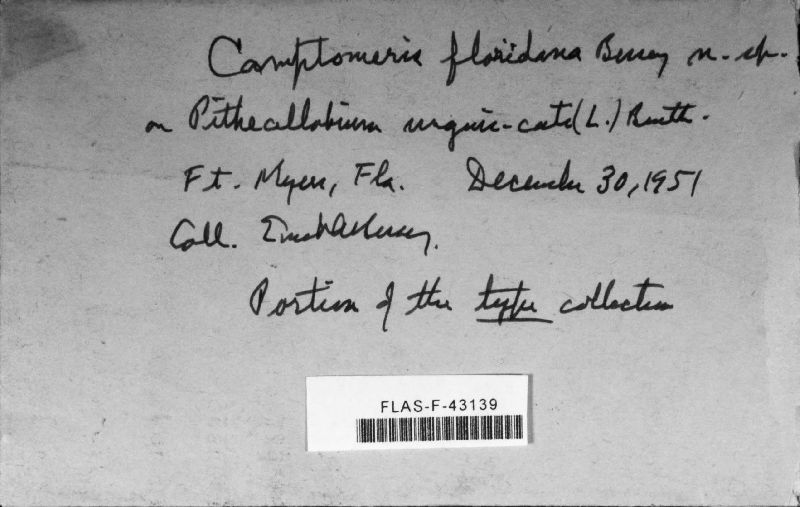 Camptomeris floridana Bessey n. sp.
on Pithecallobium unguis-cati (L.) Benth.
Ft. Myers, Fla. December 30, 1951
Coll. Ernst A Bessey.
Portion of the type collection
FLAS-F-43139